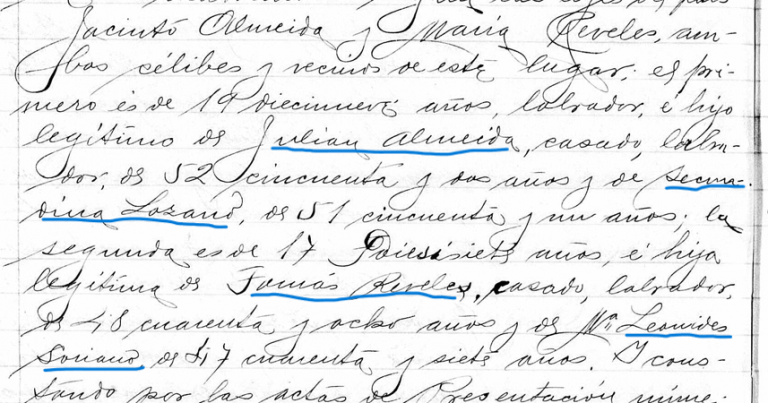 Jacinto Almeida y María Reveles, am-
bos célibes y vecinos de este lugar; el pri-
mero es de 19 diecinueve años, labrador, é hijo
legítimo de Julian Almeida, casado, labra-
dor, de 52 cincuenta y dos años y de Secun-
dina Lozano, de 51 cincuenta y un años; la
segunda es de 17 diesisiete años, é hija
legítima de Tomás Reveles, casado, labrador,
de 48 cuarenta y ocho años y de Mª Leonides
Soriano de 47 cuarenta y siete años. Y cons-
tando por las actas de Presentación núme-